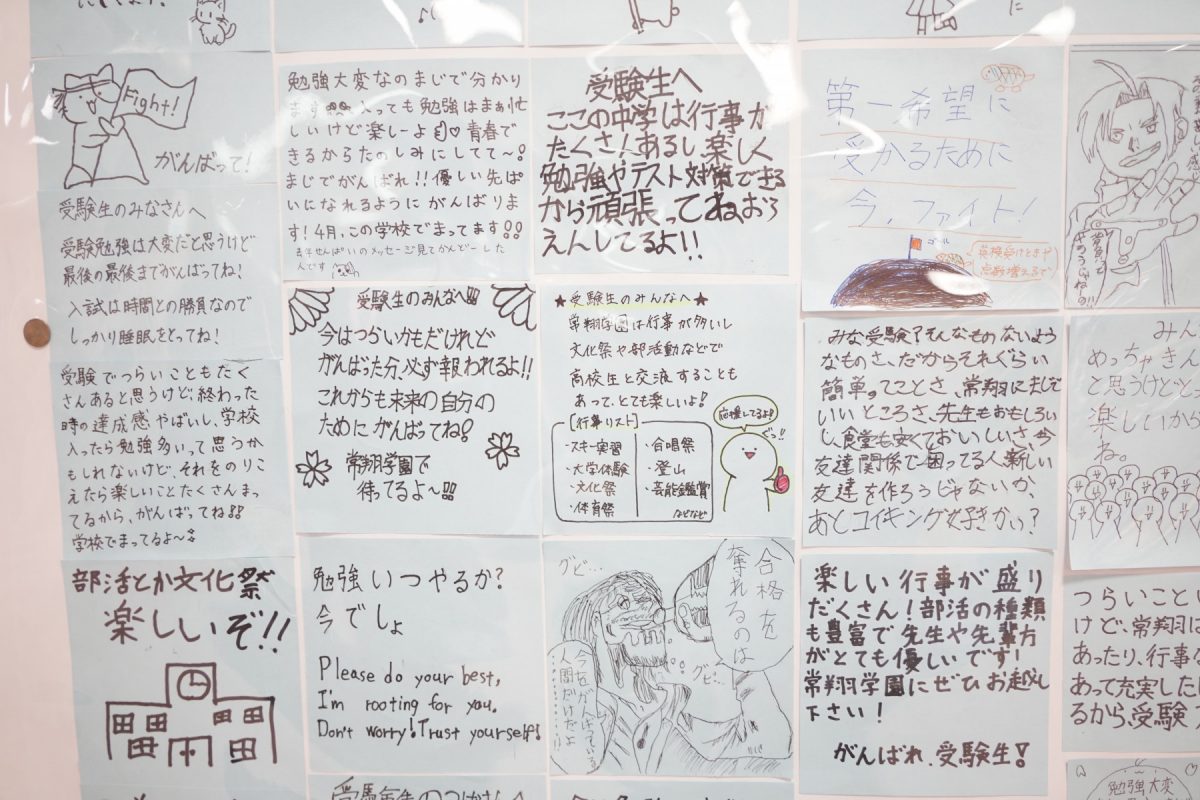 Fight!
がんばって!
受験生のみなさんへ
受験勉強は大変だと思うけど
最後の最後までがんばってね!
入試は時間との勝負なので
しっかり睡眠をとってね!
受験でつらいこともたく
さんあると思うけど、終わった
時の達成感やばいし、学校
入ったら勉強多いって思うか
もしれないけど、それをのりこ
えたら楽しいことたくさんまっ
てるから、がんばってね!!
学校でまってるよ〜
部活とか文化祭
楽しいぞ!!
勉強大変なのまじで分かり
ます
いっても勉強はまぁ忙
しいけど楽しーよ
♡青春で
きるからたのしみにしてて〜!
まじでがんばれ!!優しい先ぱ
いになれるようにがんばりま
す!4月、この学校でまってます!!
去年せんぱいのメッセージ見てかんどーした
人です
受験生のみんなへ!!!
今はつらいかもだけれど
がんばった分、必ず報われるよ!!
これからも未来の自分の
ためにがんばってね!
常翔学園で
待てるよ〜!!!
勉強いつやるか?
今でしょ
Please do your best,
I'm rooting for you.
Don't worry! Trust yourself!
受験生へ
ここの中学は行事が
たくさんあるし、楽しく
勉強やテスト対策できる
から頑張ってね、おう
えんしてるよ!!
★受験生のみんなへ★
常翔学園は行事が多いし
文化祭や部活動などで
高校生と交流することも
あって、とても楽しいよ!
[行事リスト]
・スキー実習
・大学体験
・文化祭
・体育祭
・合唱祭
・登山
・芸能鑑賞
などなど
応援してるよ!
ぐっ!!
グビ…
合格を
奪れるのは
グビ…
今をがんばっている
人間だけだよ
第一希望に
受かるために
今、ファイト!
ゴール
英検受けときや
点数増えるで
みな受験?そんなものないよう
なものさ、だからそれぐらい
簡単ってことさ、常翔にまじで
いいところさ、先生もおもしろい
し、食堂も安くておいしいさ、今
友達関係で困ってる人、新しい
友達を作ろうじゃないか、
あとコイキング好きかい?
楽しい行事が盛り
だくさん!部活の種類
も豊富で先生や先輩方
がとても優しいです!
常翔学園にぜひお越し
下さい!
がんばれ、受験生!
みん
めっちゃきん
と思うけど、
楽しいから
ね。
つらいこと
けど、常翔は
あったり、行事
あって充実した
るから、受験
勉強大変